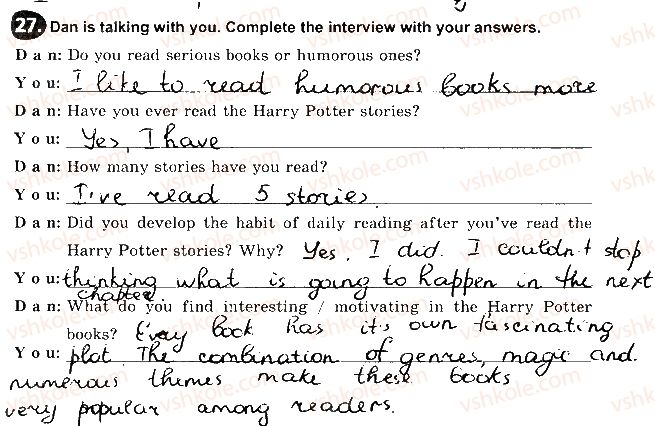 27. Dan is talking with you. Complete the interview with your answers.
Dan: Do you read serious books or humorous ones?
You: I like to read humorous books more
Dan: Have you ever read the Harry Potter stories?
You: Yes, I have
Dan: How many stories have you read?
You: I've read 5 stories.
Dan: Did you develop the habit of daily reading after you've read the
Harry Potter stories? Why? Yes, I did. I couldn't stop
You: thinking what is going to happen in the next
chapter.
Dan: What do you find interesting / motivating in the Harry Potter
books? Every book has it's own fascinating
You: plot. The combination of genres, magic and
numerous themes make these books
very popular among readers.